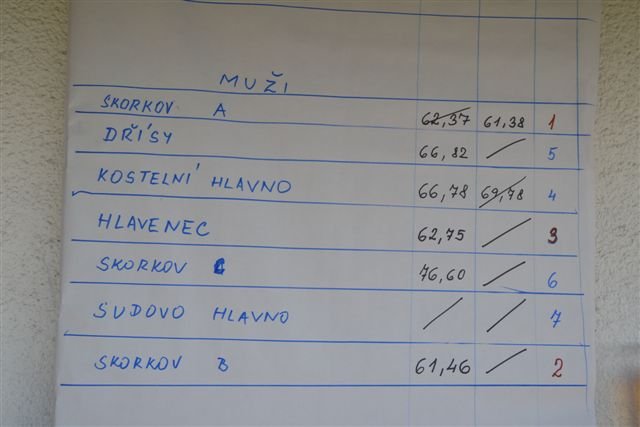 MUŽI
SKORKOV A 62,37 61,38 1
DŘÍSY 66,82 / 5
KOSTELNÍ HLAVNO 66,78 69,78 4
HLAVENEC 62,75 / 3
SKORKOV C 76,60 / 6
SUDOVO HLAVNO / / 7
SKORKOV B 61,46 / 2